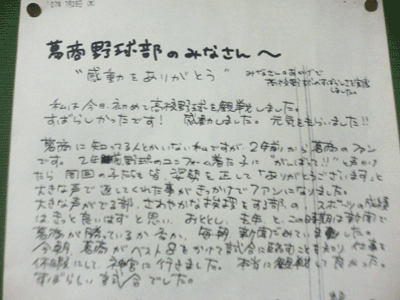 葛商野球部のみなさんへ
"感動をありがとう"
みなさんのおかげで
高校野球のすばらしさを実感
しました。
私は今日、初めて高校野球を観戦しました。
すばらしかったです! 感動しました。元気をもらいました!!
葛商に知ってる人とかいない私ですが、2年前から葛商のファン
です。2年前野球のユニフォーム着た子に"がんばって!!"と声かけ
たら周囲の子たちも皆、姿勢を正して「ありがとうございます」と
大きな声で返してくれた事がきっかけでファンになりました。
大きな声がでる部、さわやかな挨拶をする部の、スポーツの成績
はきっと良いはずと思い、おととし、去年と、この時期は新聞で
葛商が勝っているか否か、毎朝、新聞でみていました。
今朝、葛商がベスト8をかけて試合に臨むことを知り 仕事を
休暇にして、神宮に行きました。本当に観戦して良かった。
すばらしい試合でした。